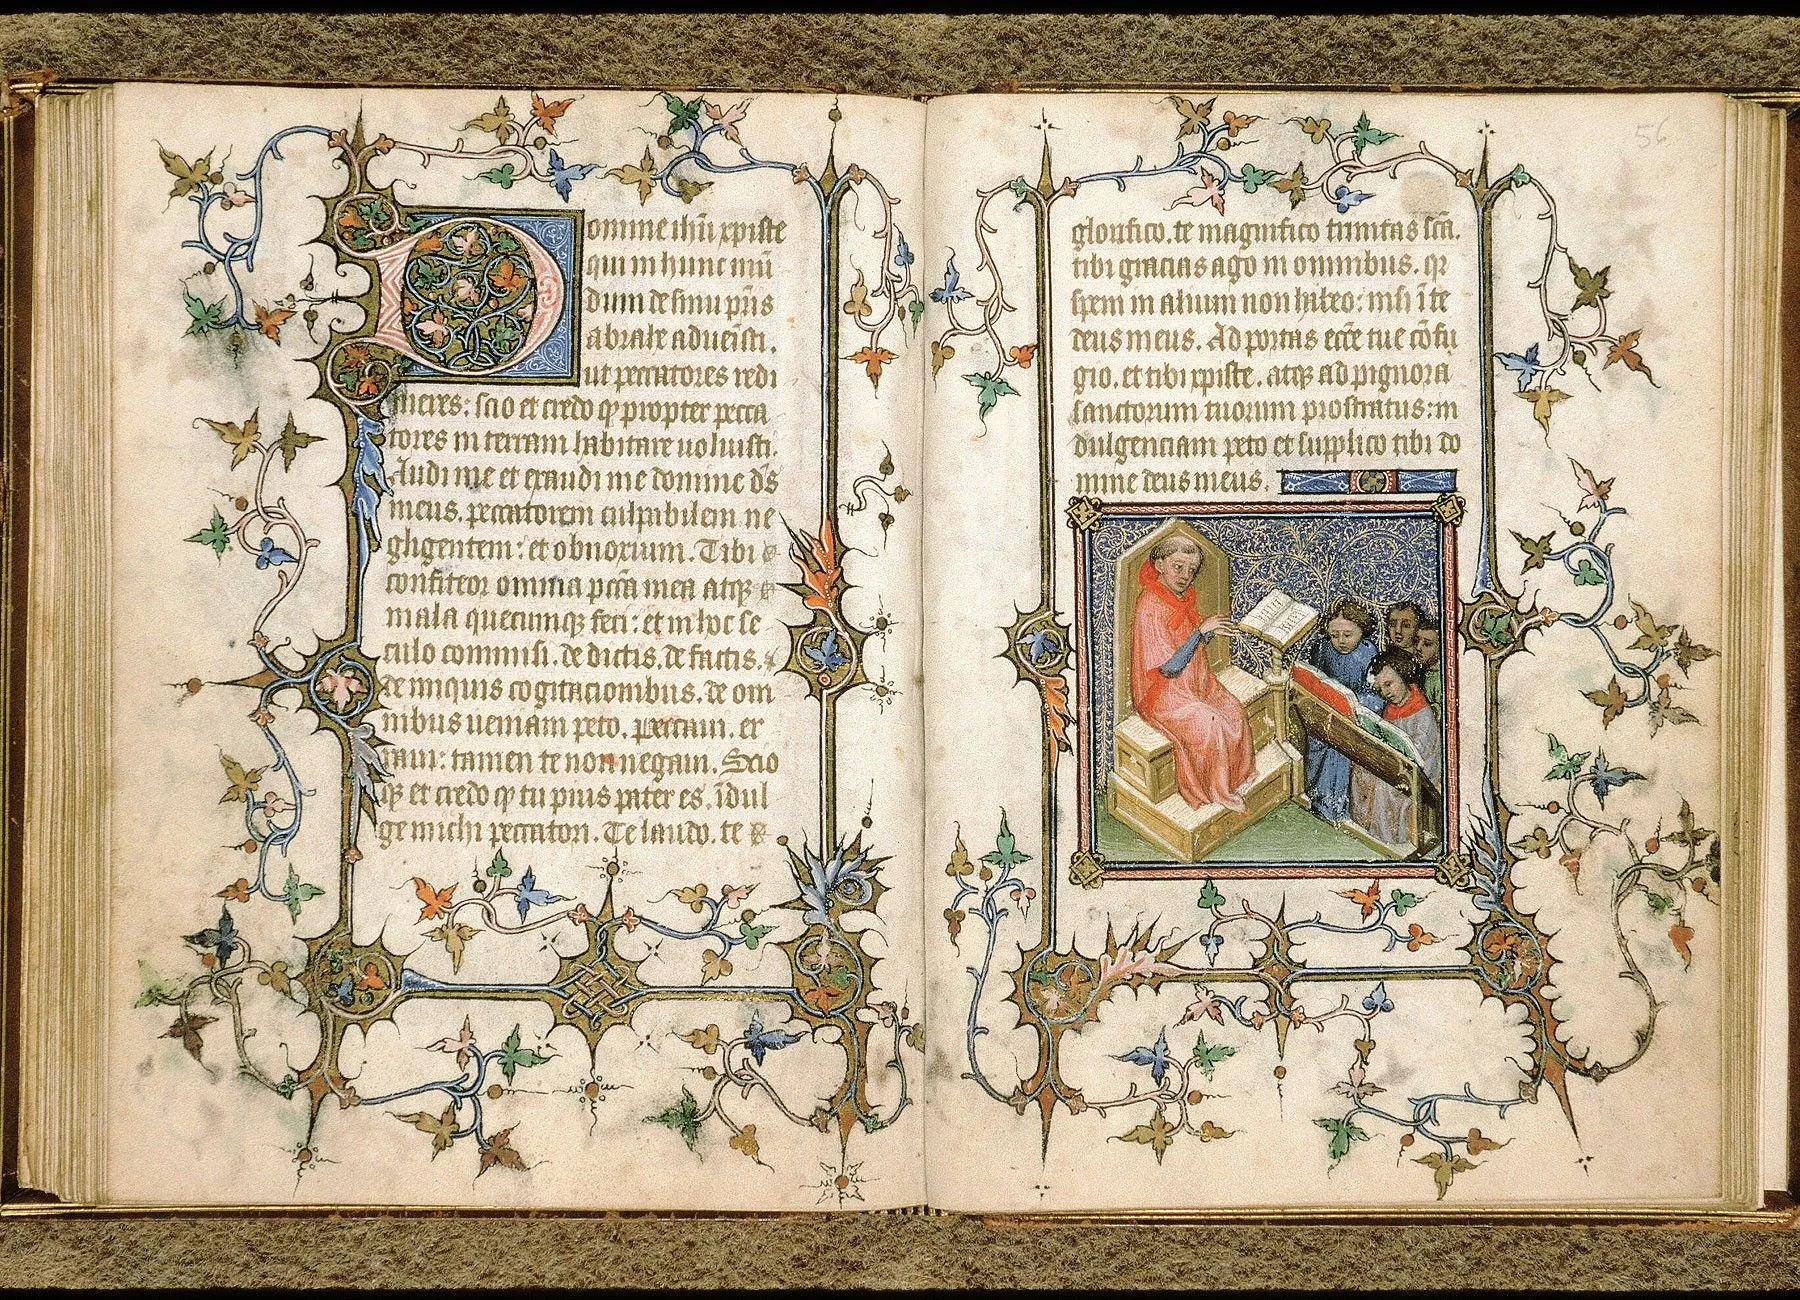 Domine ihū xpiste
qui in hunc mū
dum de sinu pr̄is
abrahe aduenisti.
ut peccatores redi
meres: scio et credo qȝ propter pecca
tores in terram habitare uoluisti.
Audi me et exaudi me domine ds̄
meus. peccatorem culpabilem ne
gligentem: et obnoxium. Tibi
confiteor omnia pcc̄a mea atqȝ
mala quecumqȝ feci: et in hoc se
culo commisi. de dictis. de factis.
de iniquis cogitacionibus. de om
nibus ueniam peto. Peccaui. er
raui: tamen te non negaui. Scio
qȝ et credo qȝ tu pius pater es. īdul
ge michi peccatori. Te laudo. te
56
glorifico. te magnifico trinitas sc̄a.
tibi gracias ago in omnibus. qr
spem in alium non habeo: nisi ī te
deus meus. Ad portas ecc̄e tue cōfu
gio. et tibi xpiste. atqȝ ad pignora
sanctorum tuorum prostratus: in
dulgenciam peto et supplico tibi do
mine deus meus.